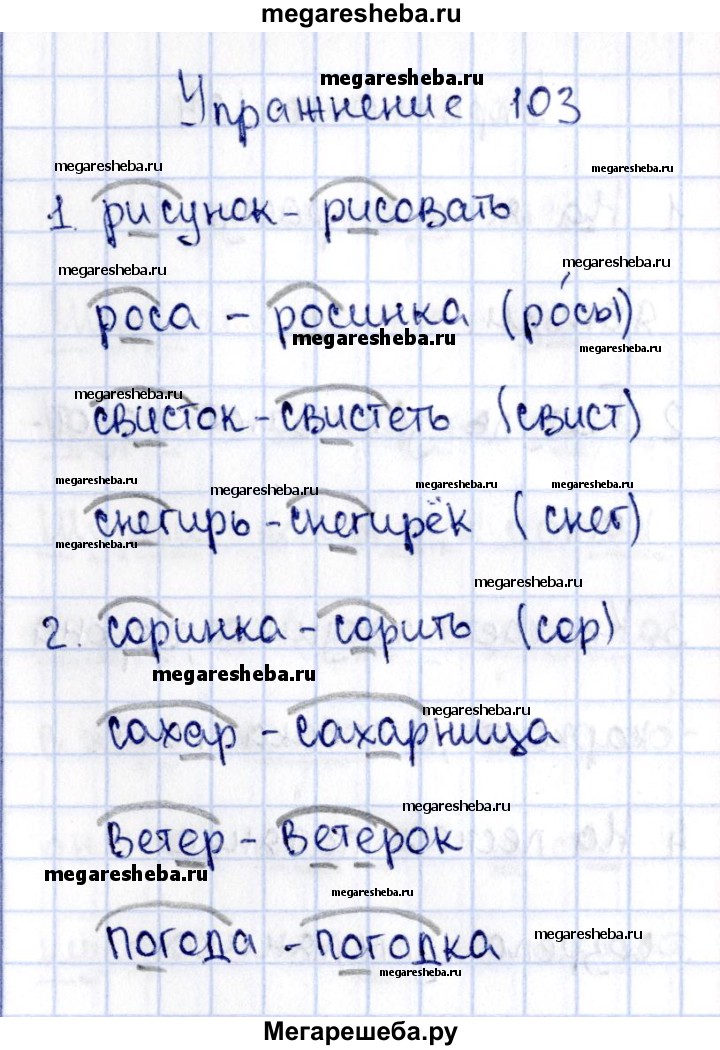 megaresheba.ru
megaresheba.ru
Упражнение 103
megaresheba.ru
megaresheba.ru
1. рисунок - рисовать
megaresheba.ru
megaresheba.ru
роса - росинка (ро́сы)
megaresheba.ru
megaresheba.ru
megaresheba.ru
свисток - свистеть (свист)
megaresheba.ru
megaresheba.ru
megaresheba.ru
megaresheba.ru
снегирь - снегирёк (снег)
megaresheba.ru
megaresheba.ru
2. соринка - сорить (сор)
megaresheba.ru
megaresheba.ru
сахар - сахарница
megaresheba.ru
ветер - ветерок
megaresheba.ru
megaresheba.ru
погода - погодка
megaresheba.ru
megaresheba.ru
Мегарешеба.ру